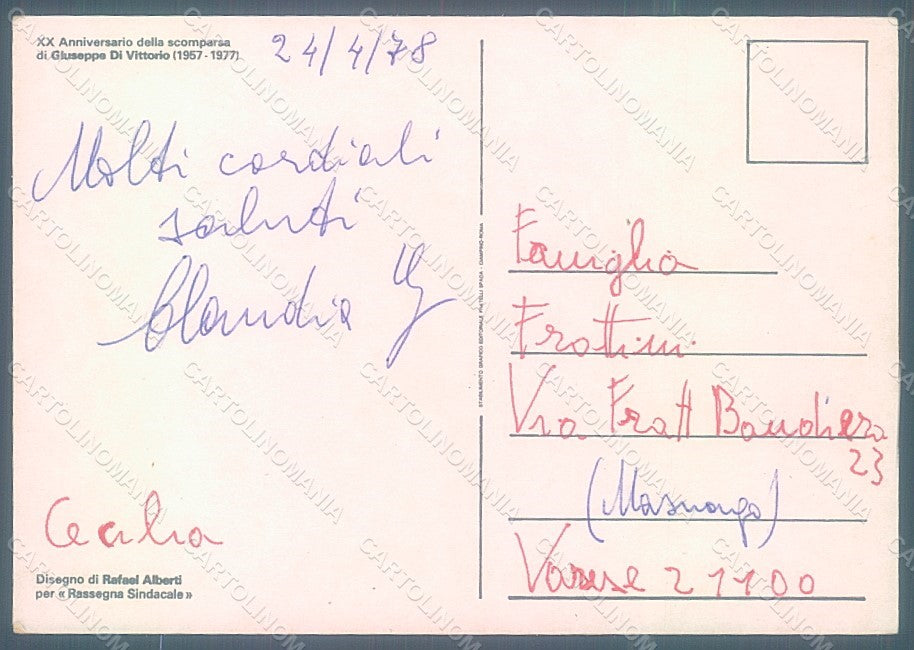 XX Anniversario della scomparsa
di Giuseppe Di Vittorio (1957-1977)
24/4/78
Molti cordiali
saluti
Claudia
Cecilia
Disegno di Rafael Alberti
per « Rassegna Sindacale »
STABILIMENTO GRAFICO EDITORIALE FRATELLI SPADA - CIAMPINO-ROMA
Famiglia
Frattini
Via Frat Bandiera
23
(Masnago)
Varese 21100
CARTOLINOMANIA